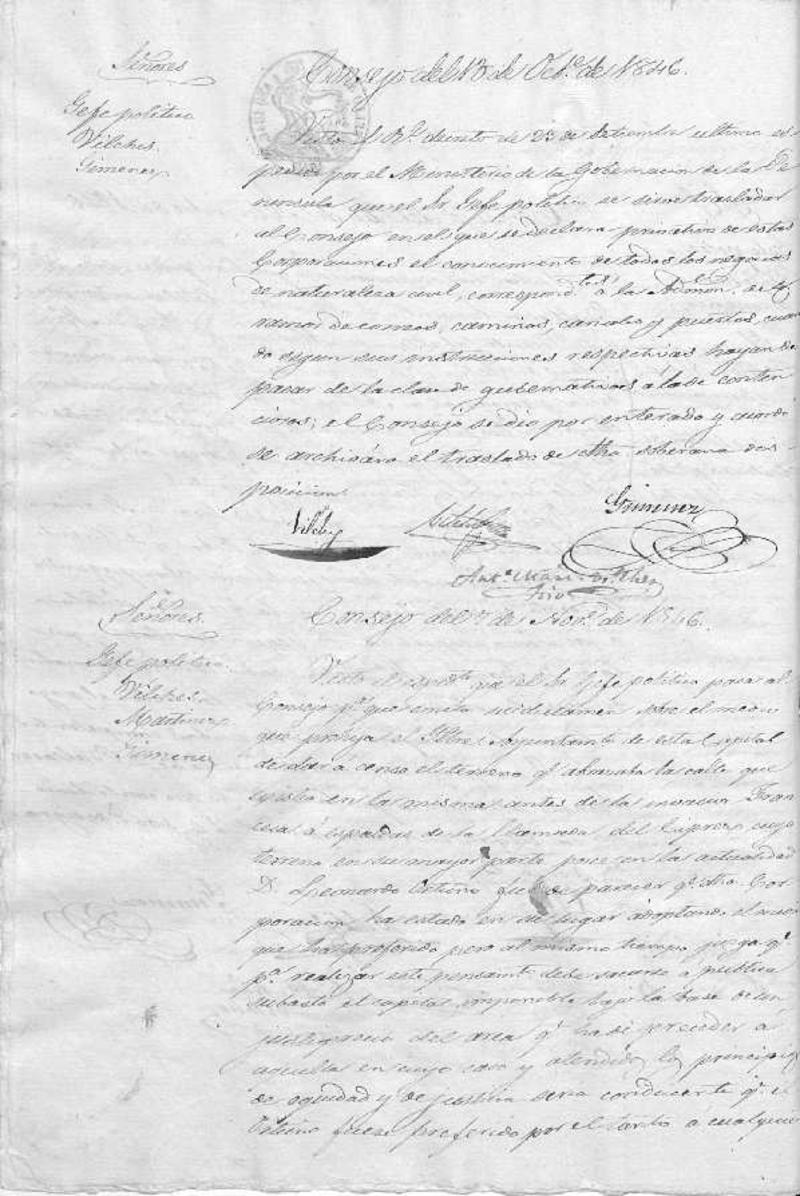 Señores
Gefe politico
Vilches
Gimenez
Consejo del 13 de Oct.e de 1846.
Visto el Rl. decreto de 23 de Setiembre ultimo es-
pedido por el Ministerio de la Gobernacion de la Pe-
ninsula que el Sr. Gefe politico se sirve trasladar
al Consejo en el que se declara privativo de estas
Corporaciones el conocimiento de todos los negocios
de naturaleza civil, correspond.tes á la Admon. de
ramos de correos, caminos, canales y puertos, cuan-
do segun sus instrucciones respectivas hayan de
pasar de la clase de gubernativos á la de conten-
ciosos; el Consejo se dio por enterado y acordó
se archivára el traslado de dha soberana dis-
posicion.
Vilches
Gimenez
Señores.
Gefe politico.
Vilches.
Martinez
Gimenez
Consejo del de Nov.e de 1846.
Visto el esped.te que el Sr. Gefe politico pasa al
Consejo p.a que emita su dictamen sobre el medio
que prohija el Iltre. Ayuntam.to de esta Capital
de dar á censo el terreno q.e abrazaba la calle que
existia en la misma antes de la invasion Fran-
cesa á espaldas de la llamada del Cipres, cuyo
terreno en su mayor parte posee en la actualidad
D. Leonardo Ortuño fué de parecer q.e dha. Cor-
poracion ha estado en su lugar adoptando el medio
que ha preferido pero al mismo tiempo juzga q.e
p.a realizar este pensam.to debe sacarse á publica
subasta el capital imponible bajo la base de un
justiprecio del area q.e ha de preceder á
aquella en cuyo caso y atendidos los principios
de equidad y de justicia seria conducente q.e el
Ortuño fuese preferido por el tanto á cualquier